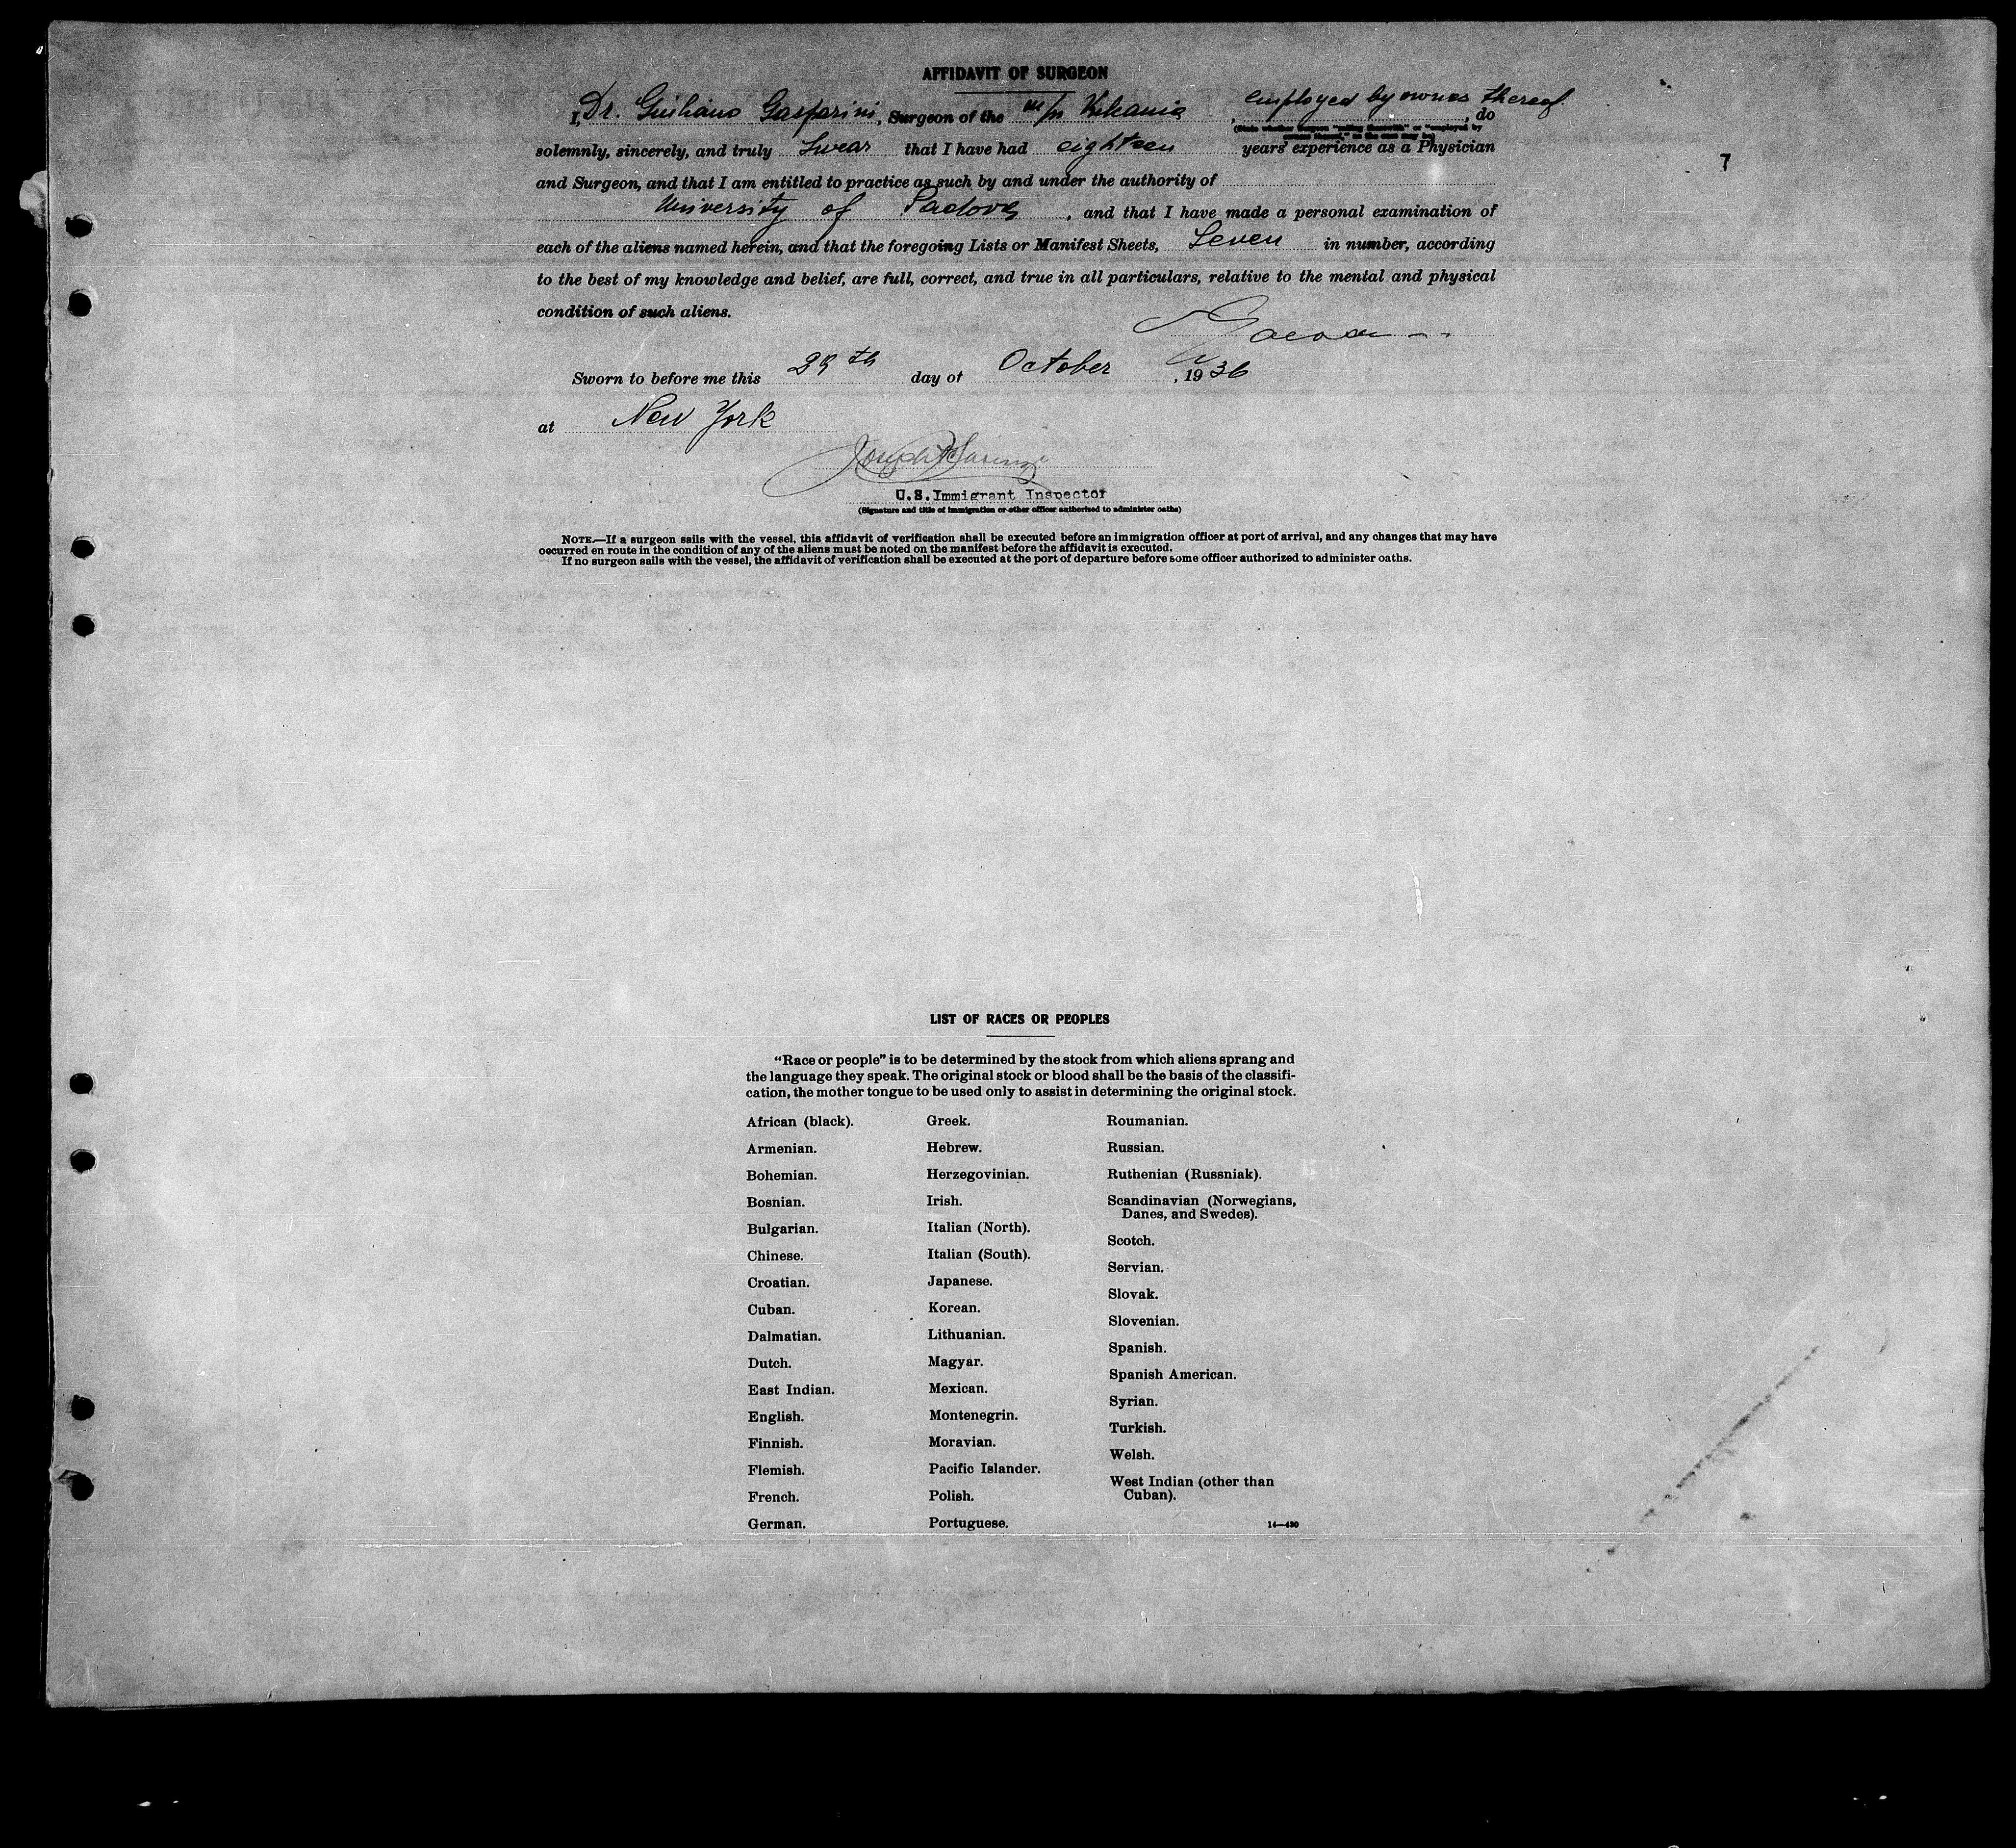 AFFIDAVIT OF SURGEON
I, Dr. Giuliano Gasparini, Surgeon of the m/n Vulcania, employed by owners thereof, do
(State whether surgeon "sailing therewith" or "employed by
owners thereof," as the case may be)
solemnly, sincerely, and truly Swear that I have had eighteen years' experience as a Physician
7
and Surgeon, and that I am entitled to practice as such by and under the authority of
University of Padova, and that I have made a personal examination of
each of the aliens named herein, and that the foregoing Lists or Manifest Sheets, Seven in number, according
to the best of my knowledge and belief, are full, correct, and true in all particulars, relative to the mental and physical
condition of such aliens.
Sworn to before me this 29th day of October, 1936
at New York
U.S. Immigrant Inspector
(Signature and title of immigration or other officer authorized to administer oaths)
NOTE.—If a surgeon sails with the vessel, this affidavit of verification shall be executed before an immigration officer at port of arrival, and any changes that may have
occurred en route in the condition of any of the aliens must be noted on the manifest before the affidavit is executed.
If no surgeon sails with the vessel, the affidavit of verification shall be executed at the port of departure before some officer authorized to administer oaths.
LIST OF RACES OR PEOPLES
"Race or people" is to be determined by the stock from which aliens sprang and
the language they speak. The original stock or blood shall be the basis of the classifi-
cation, the mother tongue to be used only to assist in determining the original stock.
African (black).
Armenian.
Bohemian.
Bosnian.
Bulgarian.
Chinese.
Croatian.
Cuban.
Dalmatian.
Dutch.
East Indian.
English.
Finnish.
Flemish.
French.
German.
Greek.
Hebrew.
Herzegovinian.
Irish.
Italian (North).
Italian (South).
Japanese.
Korean.
Lithuanian.
Magyar.
Mexican.
Montenegrin.
Moravian.
Pacific Islander.
Polish.
Portuguese.
Roumanian.
Russian.
Ruthenian (Russniak).
Scandinavian (Norwegians,
Danes, and Swedes).
Scotch.
Servian.
Slovak.
Slovenian.
Spanish.
Spanish American.
Syrian.
Turkish.
Welsh.
West Indian (other than
Cuban).
14—430